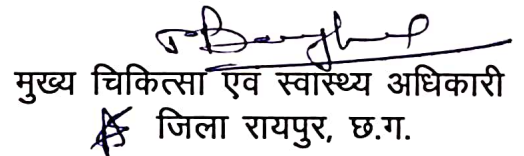 मुख्य चिकित्सा एवं स्वास्थ्य अधिकारी
जिला रायपुर, छ.ग.